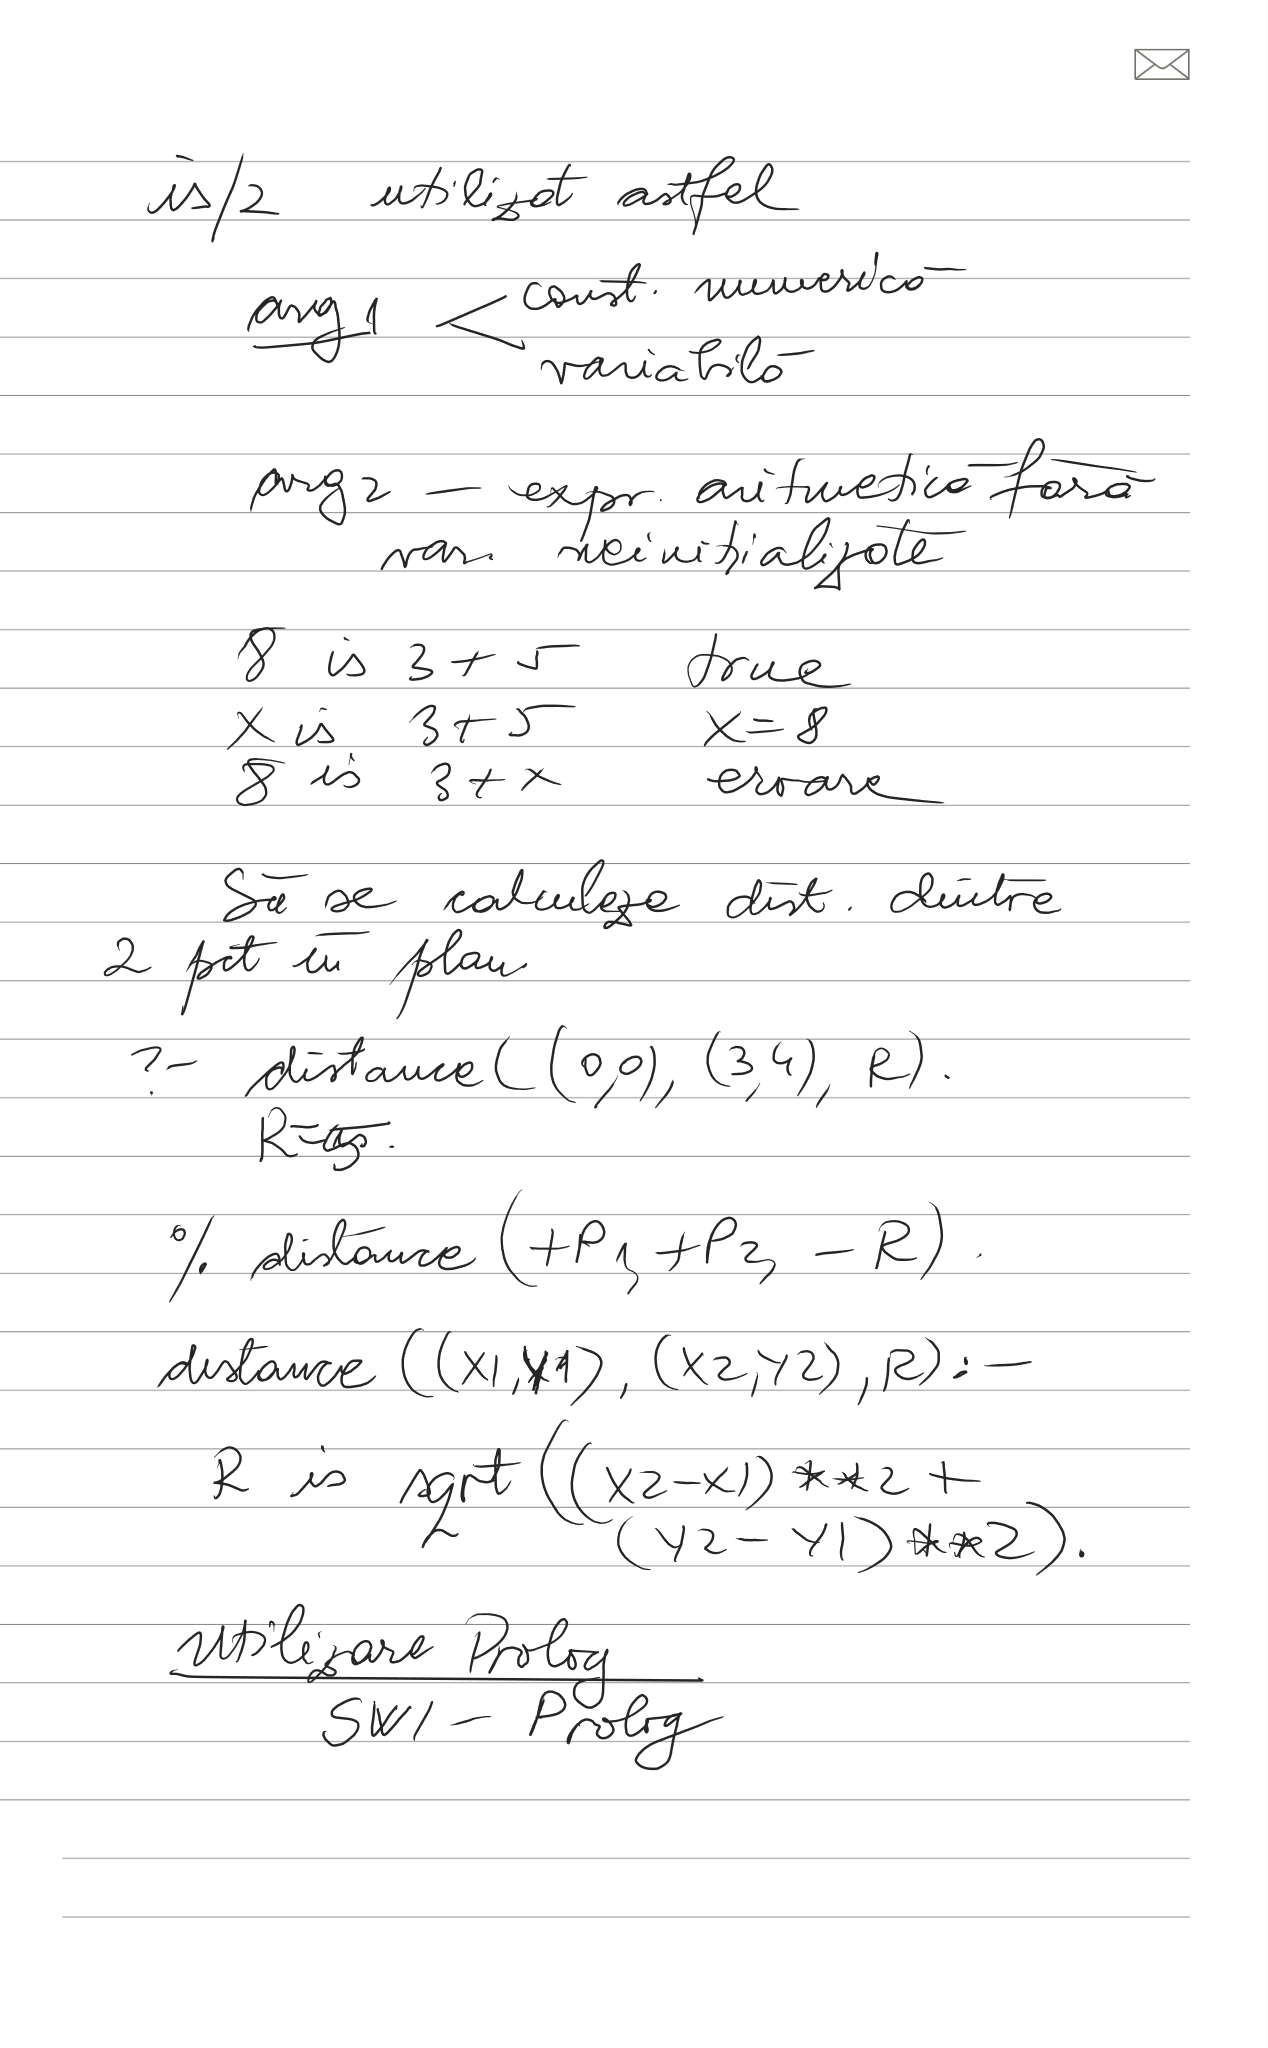 is/2 utilizat astfel
arg 1 < const. numerică
variabilă
arg 2 – expr. aritmetică fără
var. neinițializate
8 is 3+5 true
X is 3+5 X=8
8 is 3+X eroare
Să se calculeze dist. dintre
2 pct în plan
?- distance((0,0), (3,4), R).
R=5.
% distance (+P1, +P2, -R).
distance ((X1,Y1), (X2,Y2), R):-
R is sqrt((X2-X1)**2 +
(Y2-Y1)**2).
Utilizare Prolog
SWI-Prolog